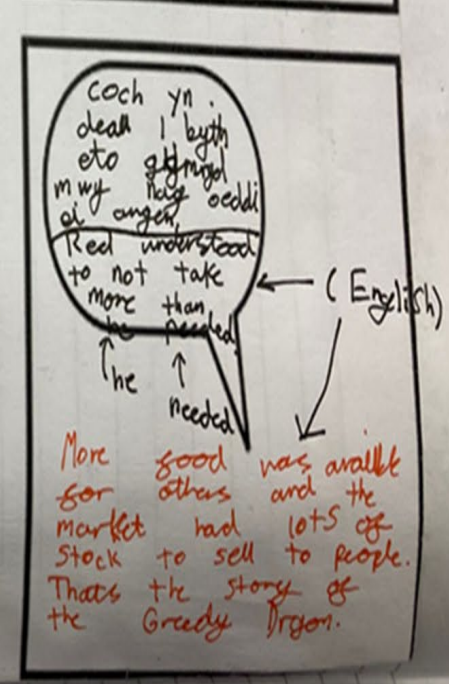 coch yn.
deall I byth
eto gymryd
mwy nag oeddi
ei angen,
Red understood
to not take
more than
he needed
(English)
he
needed
More good was availble
for others and the
market had lots of
Stock to sell to people.
Thats the story of
the Greedy Drgon.